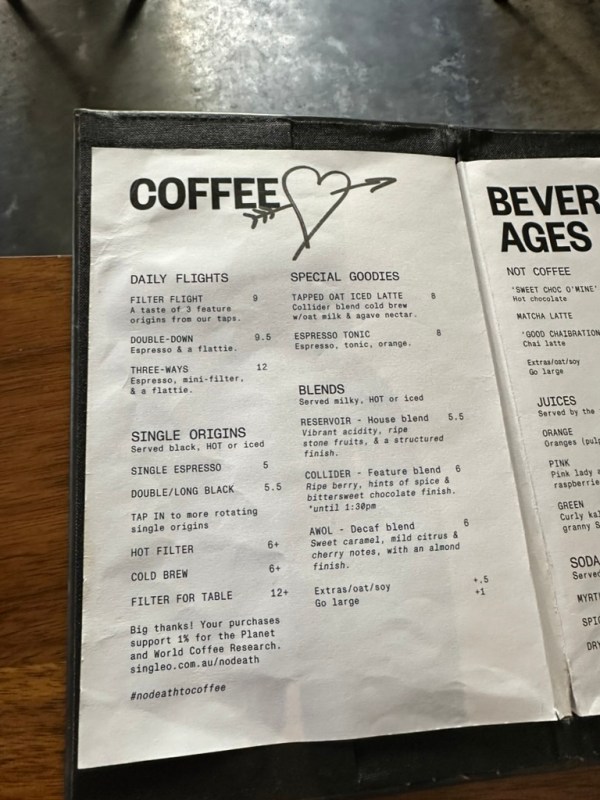 COFFEE
DAILY FLIGHTS
FILTER FLIGHT 9
A taste of 3 feature
origins from our taps.
DOUBLE-DOWN 9.5
Espresso & a flattie.
THREE-WAYS 12
Espresso, mini-filter,
& a flattie.
SINGLE ORIGINS
Served black, HOT or iced
SINGLE ESPRESSO 5
DOUBLE/LONG BLACK 5.5
TAP IN to more rotating
single origins
HOT FILTER 6+
COLD BREW 6+
FILTER FOR TABLE 12+
Big thanks! Your purchases
support 1% for the Planet
and World Coffee Research.
singleo.com.au/nodeath
#nodeathtocoffee
SPECIAL GOODIES
TAPPED OAT ICED LATTE 8
Collider blend cold brew
w/oat milk & agave nectar.
ESPRESSO TONIC 8
Espresso, tonic, orange.
BLENDS
Served milky, HOT or iced
RESERVOIR - House blend 5.5
Vibrant acidity, ripe
stone fruits, & a structured
finish.
COLLIDER - Feature blend 6
Ripe berry, hints of spice &
bittersweet chocolate finish.
*until 1:30pm
AWOL - Decaf blend 6
Sweet caramel, mild citrus &
cherry notes, with an almond
finish.
Extras/oat/soy +.5
Go large +1
BEVER
AGES
NOT COFFEE
'SWEET CHOC O'MINE'
Hot chocolate
MATCHA LATTE
'GOOD CHAIBRATION
Chai latte
Extras/oat/soy
Go large
JUICES
Served by the
ORANGE
Oranges (pul
PINK
Pink lady
raspberrie
GREEN
Curly ka
granny S
SODA
Served
MYRT
SPIC
DRY